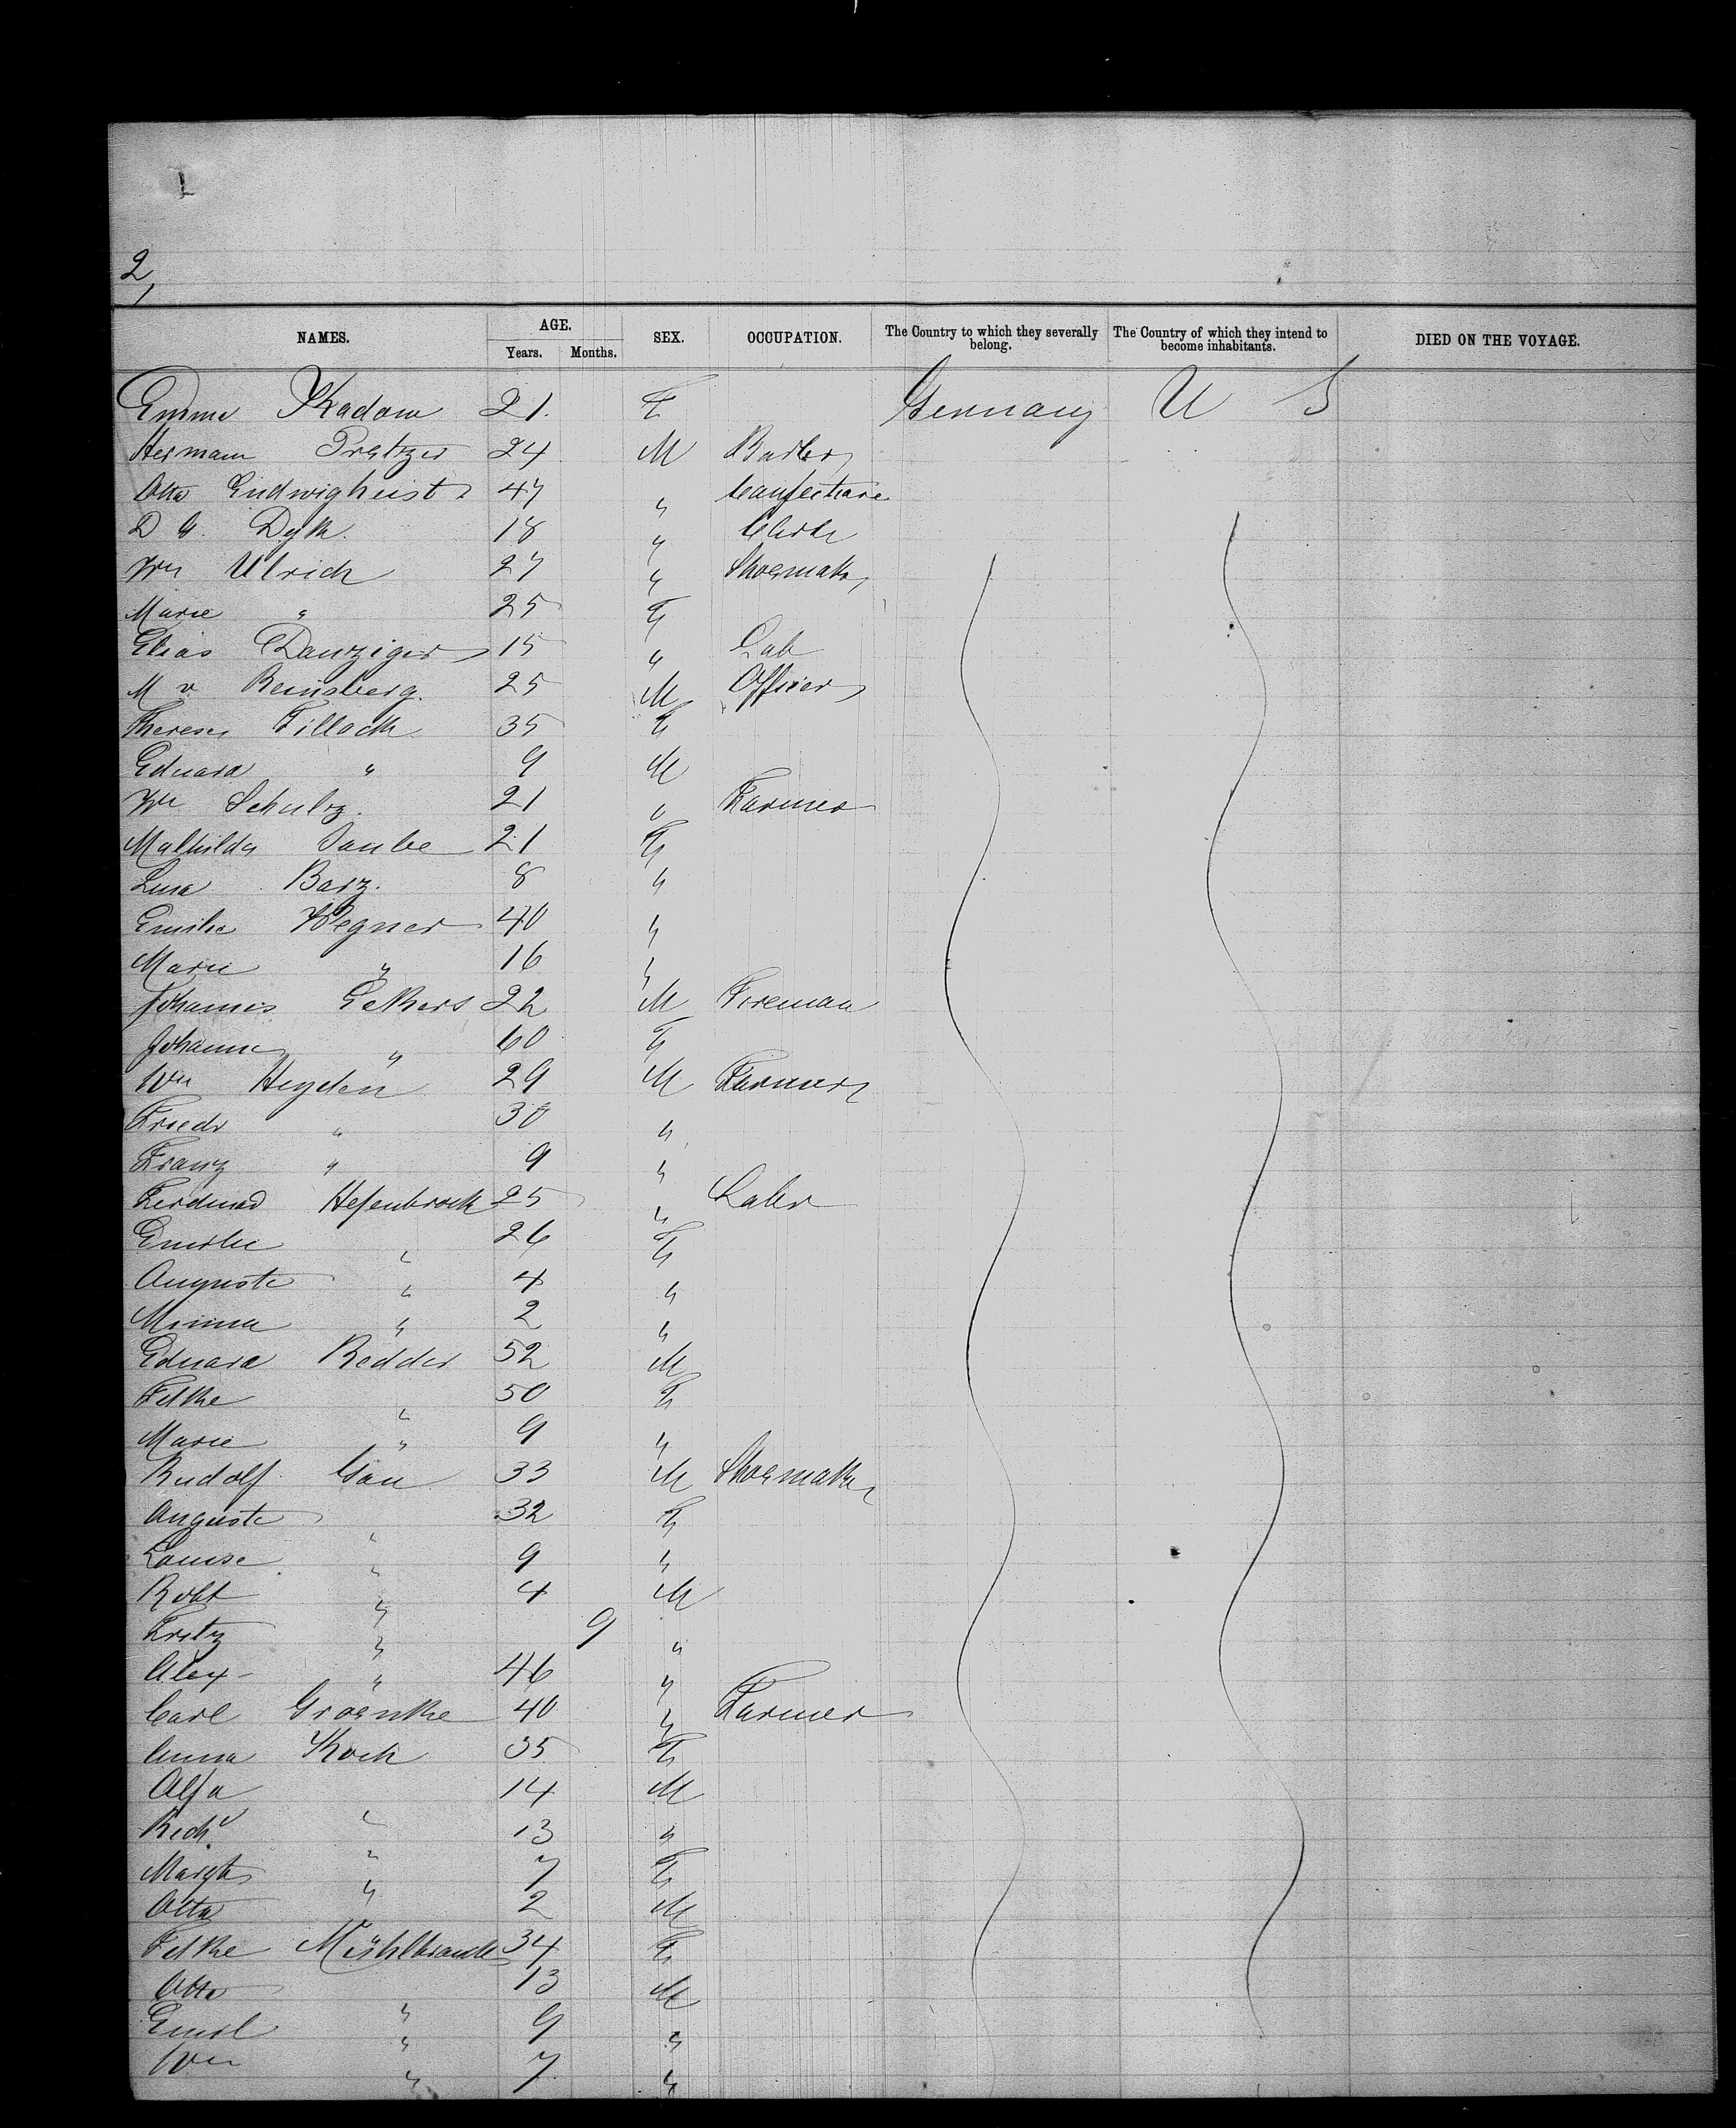 2,
NAMES. AGE. SEX. OCCUPATION. The Country to which they severally belong. The Country of which they intend to become inhabitants. DIED ON THE VOYAGE.
Years. Months.
Emma Kadow 21 F Germany U S
Hermann Pretzer 24 M Barber
Otto 47 " 
D G. Dyk. 18 " Clerk
Wm Ulrich 27 " Shoemaker
Marie " 25 F
Elias Danziger 15 " Lab
M v. Reinsberg. 25 M Officer
Therese Tillack 35 F
Eduard " 9 M
Wm Schulz. 21 " Farmer
Mathilde Taube 21 F
Lina Barz. 8 "
Emilie Wegner 40 "
Marie " 16 "
Johannes Gekers 22 M Fireman
Johanne " 60 F
Wm Heyden 29 M Farmer
Friedr " 30 "
Franz " 9 "
Ferdinand Hefenbrock 25 " Labr
Emilie " 26 F
Auguste " 4 "
Minna " 2 "
Eduard Redder 52 M
Felke " 50 F
Marie " 9 "
Rudolf Gau 33 M Shoemaker
Auguste " 32 F
Louise " 9 "
Robt " 4 M
Fritz " 9 "
Alex " 46 "
Carl Groenke 40 " Farmer
Anna Koch 35 F
Alfd " 14 M
Richd " 13 "
Margts " 7 F
Otto " 2 M
Felke Mühlbrandt 34 F
Otto " 13 M
Emil " 9 "
Wm " 7 "